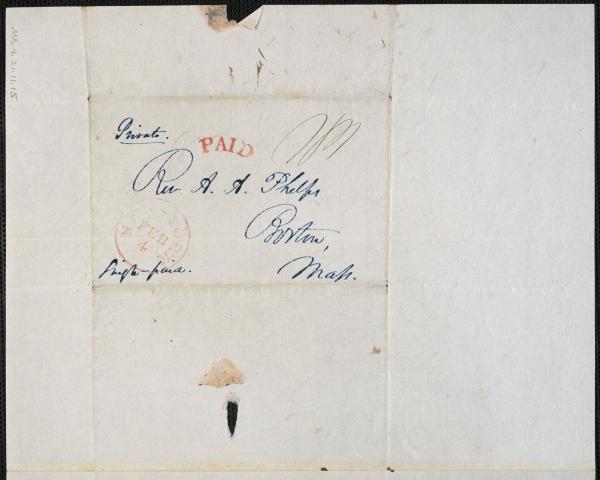 Private.
PAID
Rev. A. A. Phelps
Boston,
Mass.
FEB
4
paid.